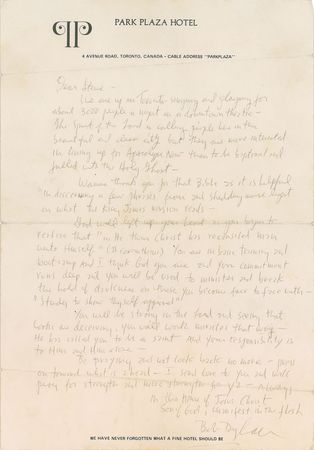 PARK PLAZA HOTEL
4 AVENUE ROAD, TORONTO, CANADA • CABLE ADDRESS "PARKPLAZA"
Dear Steve –
We are up in Toronto singing and playing for
about 3000 people a night in a downtown theatre –
The Spirit of the Lord is calling people here in this
beautiful and clean city but they are more interested
in lining up for Apocalypse Now than to be baptized and
filled with the Holy Ghost –
Wanna thank you for that Bible as it is helpful
in discovering a few phrases from and shedding more light
on what the King James version reads –
God will lift up your heart as you begin to
realize that "in Him thru Christ has reconciled man
unto Himself" (2 Corinthians) You are in basic training and
boot camp and I think God you are and your commitment
runs deep and you will be used to minister and break
the hold of darkness on those you become face to face with –
"Studies to show thyself approved"
You will be strong in the Lord and seeing that
works are deceiving, you will work minister that way –
He has called you to be a saint and your responsibility is
to Him and Him alone –
Be praying and not look back no more – press
on toward what is ahead – I send love to you and will
pray for strength and more strength for you – always,
in the Name of Jesus Christ
Son of God, manifest in the flesh
Bob Dylan
WE HAVE NEVER FORGOTTEN WHAT A FINE HOTEL SHOULD BE